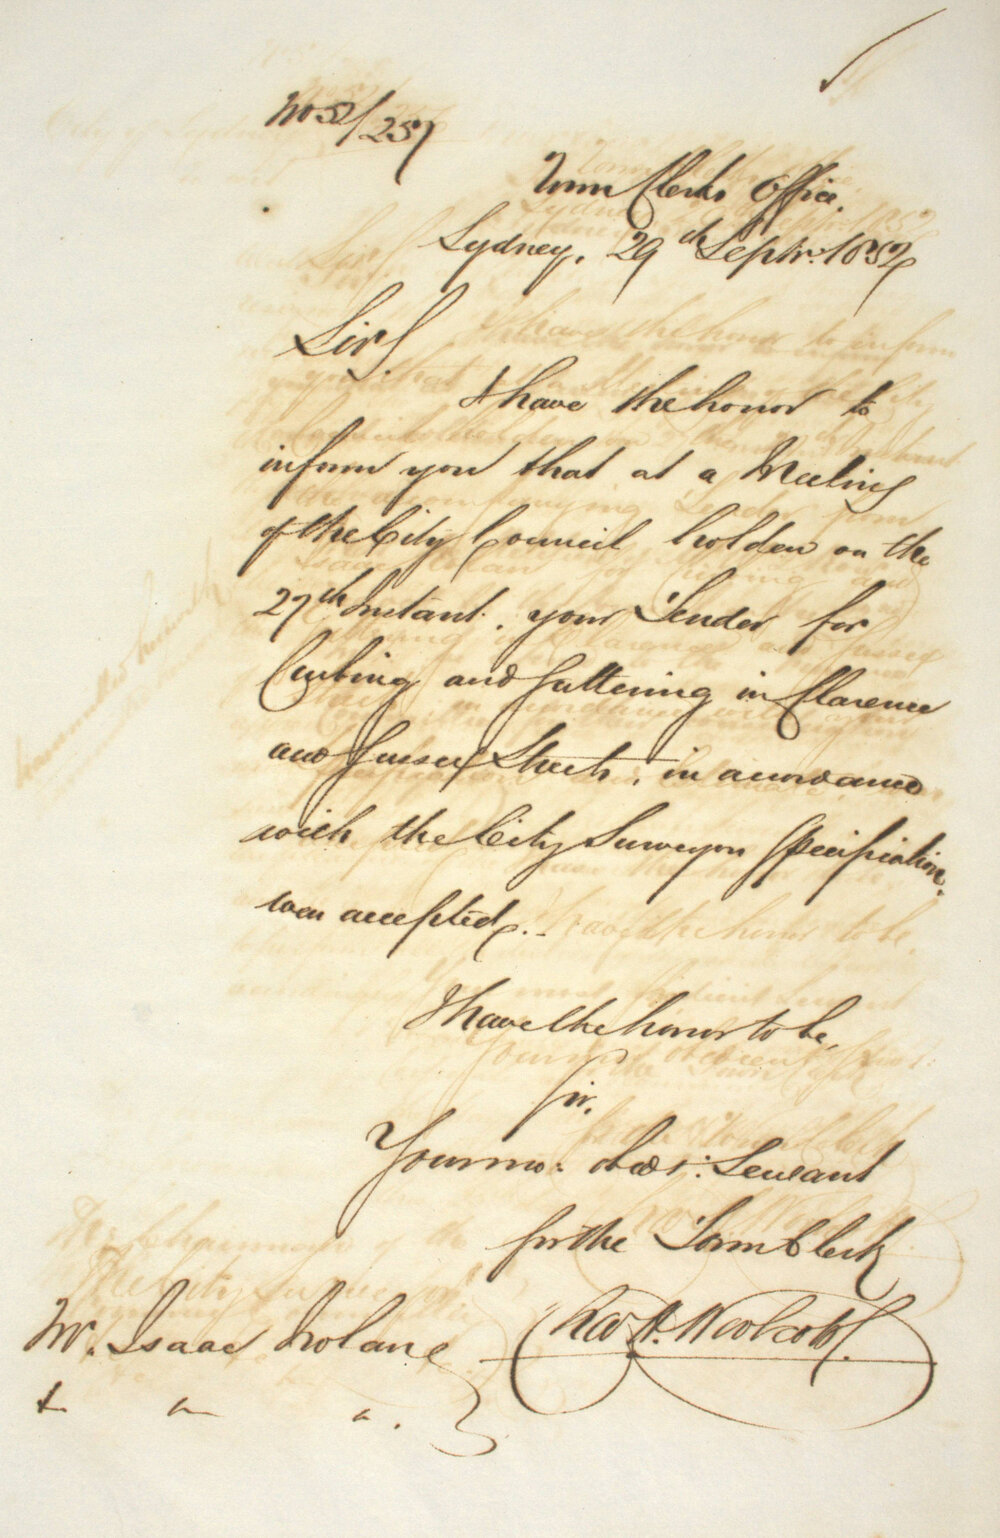 No 52/257
Town Clerks Office.
Sydney, 29th Septr. 1852
Sir,
I have the honor to
inform you that at a Meeting
of the City Council holden on the
27th Instant. your Tender for
Curbing and Guttering in Clarence
and Sussex Streets, in accordance
with the City Surveyors Specification.
was accepted.
I have the honor to be,
Sir.
Your mo: obedt: Servant
for the Town Clerk
Chas H. Woolcott.
Mr. Isaac Nolan